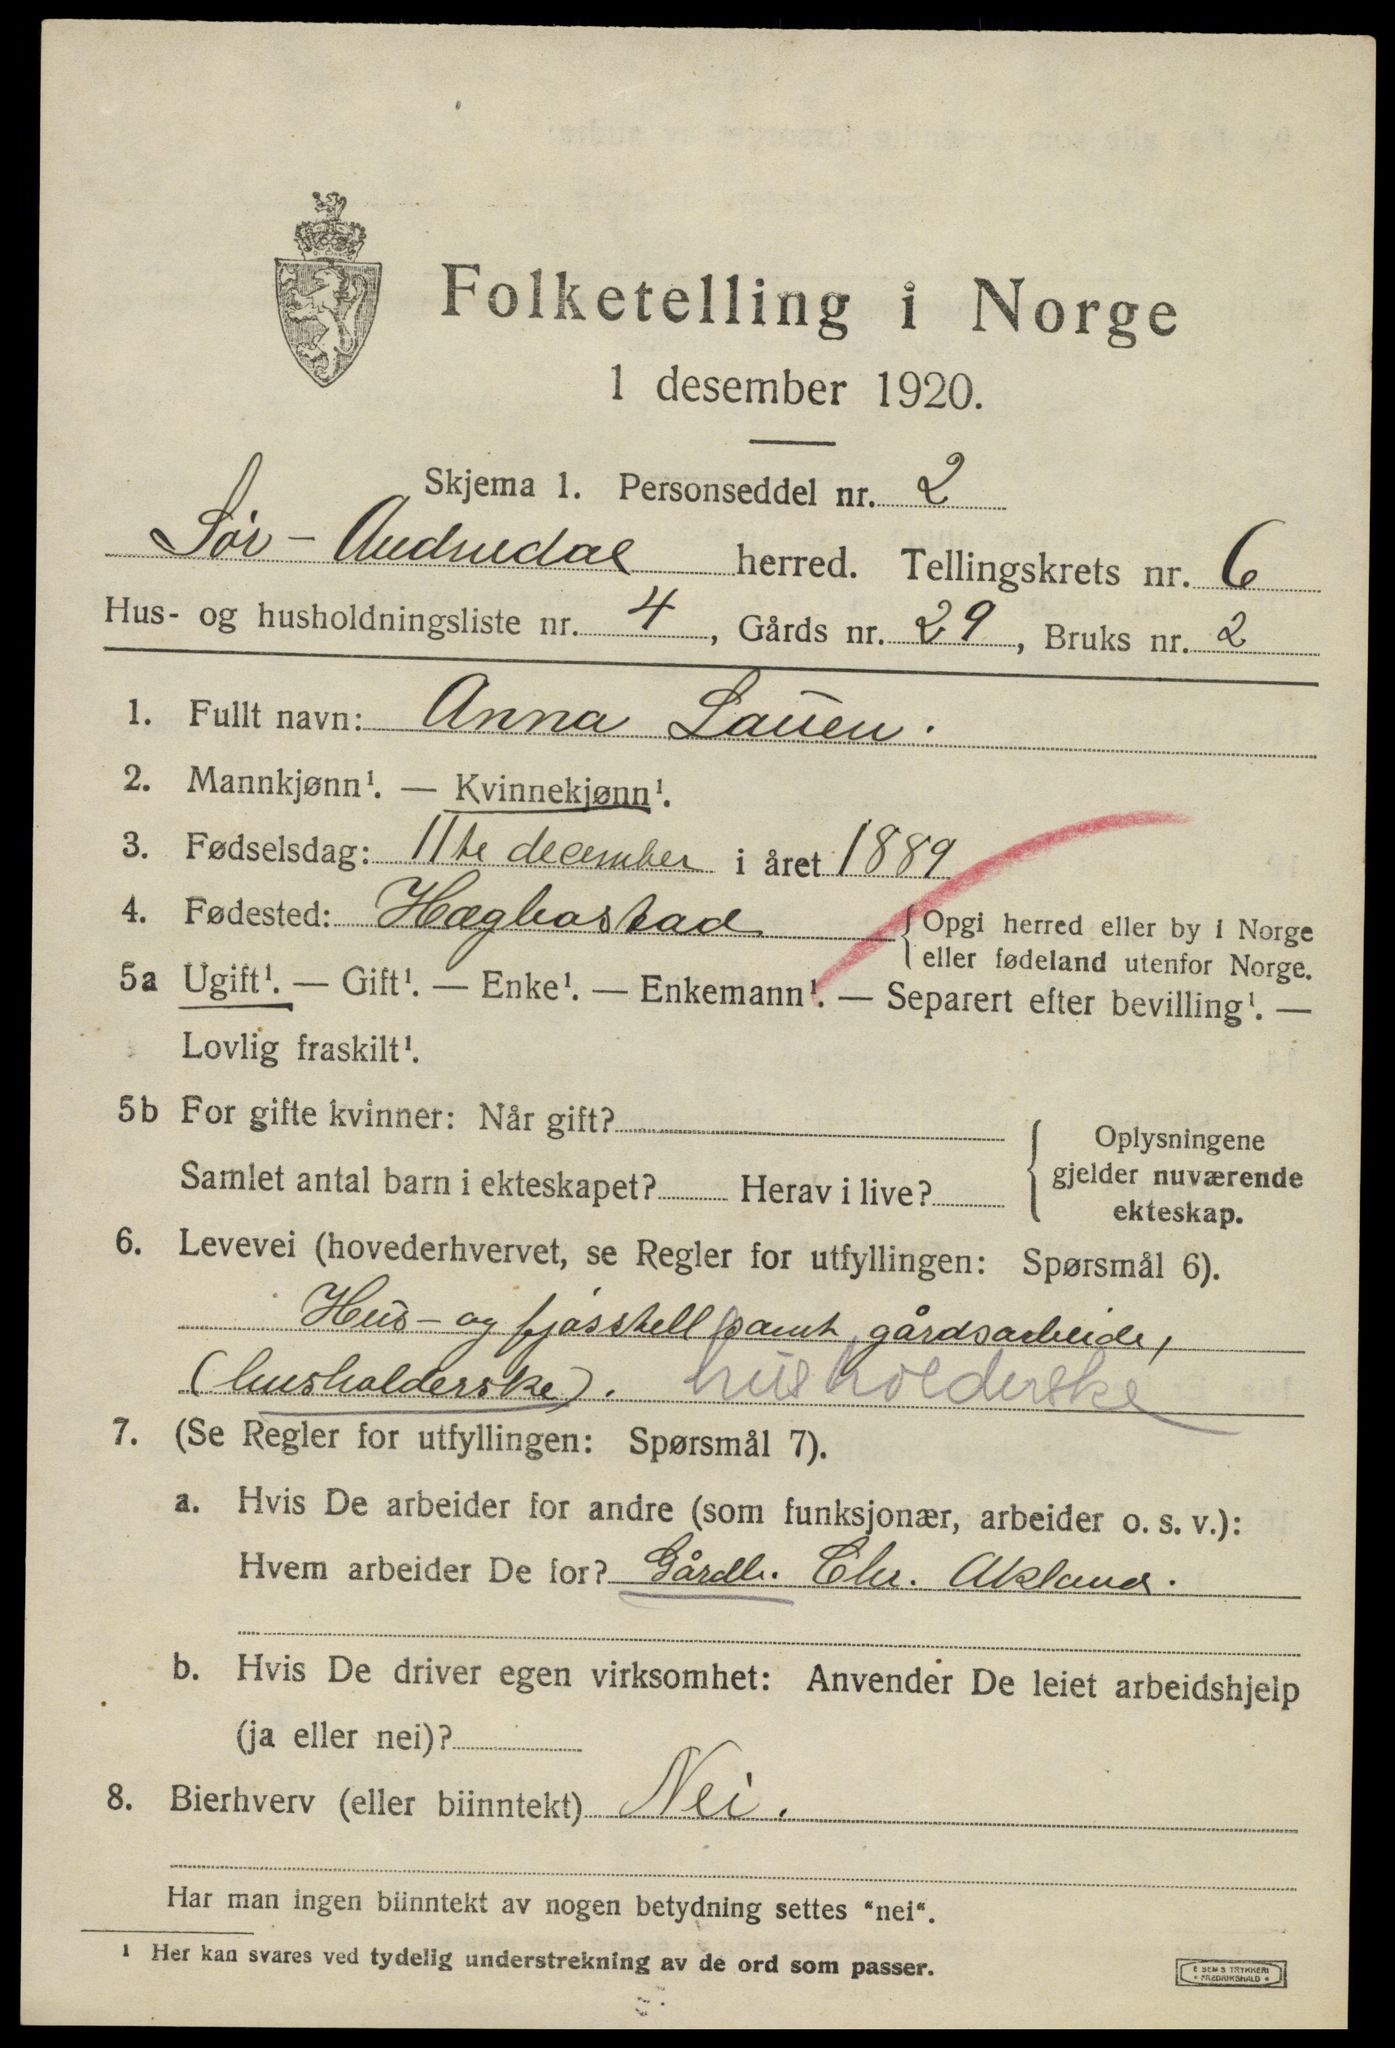 Folketelling i Norge
1 desember 1920.
Skjema 1. Personseddel nr. 2
Sør-Audnedal herred. Tellingskrets nr. 6
Hus- og husholdningsliste nr. 4, Gårds nr. 29, Bruks nr. 2
1. Fullt navn: Anna Lauen.
2. Mannkjønn¹. — Kvinnekjønn¹.
3. Fødselsdag: 11te december i året 1889
4. Fødested: Hægbostad {Opgi herred eller by i Norge
eller fødeland utenfor Norge.
5a Ugift¹. — Gift¹. — Enke¹. — Enkemann¹. — Separert efter bevilling¹. —
Lovlig fraskilt¹.
5b For gifte kvinner: Når gift?
Samlet antal barn i ekteskapet? Herav i live?
Oplysningene
gjelder nuværende
ekteskap.
6. Levevei (hovederhvervet, se Regler for utfyllingen: Spørsmål 6).
Hus- og fjøsstell samt gårdsarbeide,
(husholderske). husholderske
7. (Se Regler for utfyllingen: Spørsmål 7).
a. Hvis De arbeider for andre (som funksjonær, arbeider o. s. v.):
Hvem arbeider De for? Gårdb. Chr. Akland.
b. Hvis De driver egen virksomhet: Anvender De leiet arbeidshjelp
(ja eller nei)?
8. Bierhverv (eller biinntekt) Nei.
Har man ingen biinntekt av nogen betydning settes "nei".
¹ Her kan svares ved tydelig understrekning av de ord som passer.
E SEMS TRYKKERI
• FREDRIKSHALD •